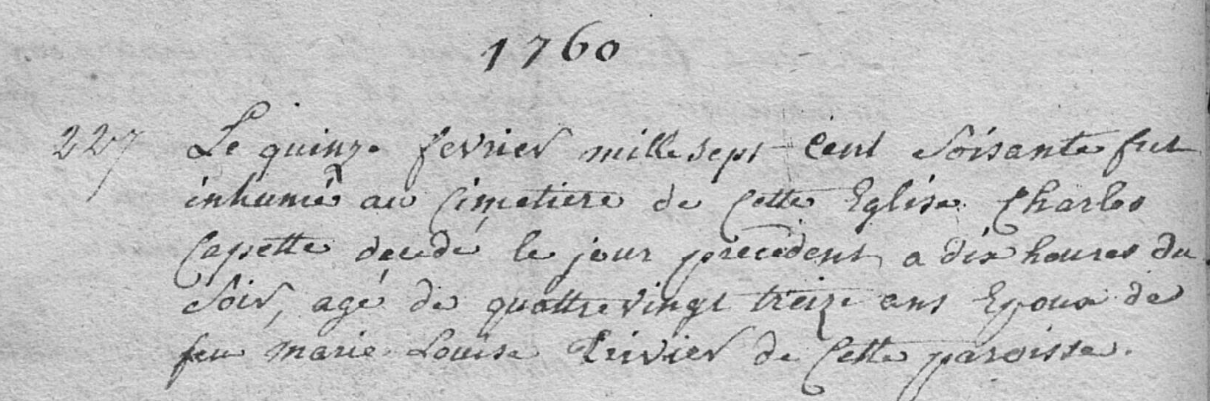 1760
227 Le quinze fevrier mille sept cent soisante fut
inhumé au Cimetiere de cette Eglise Charles
Capette decedé le jour precedent a dix heures du
soir, agé de quattre vingt treize ans Epoux de
feu marie Louise Privier de cette paroisse.